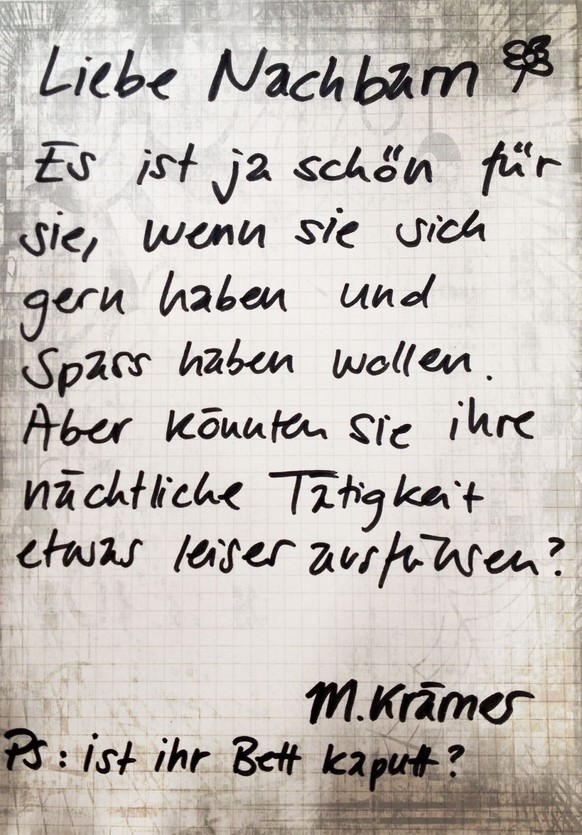 Liebe Nachbarn
Es ist ja schön für
sie, wenn sie sich
gern haben und
Spass haben wollen.
Aber könnten sie ihre
nächtliche Tätigkeit
etwas leiser ausführen?
M. Krämer
PS: ist ihr Bett kaputt?